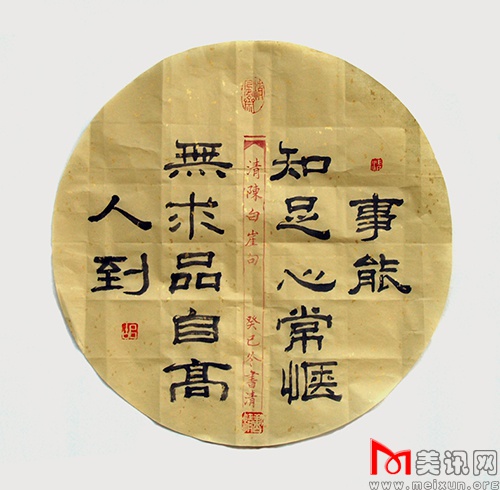 事能
知足心常惬
人到
無求品自高
清陳白崖句
癸巳冬書清
美讯网
www.meixun.org